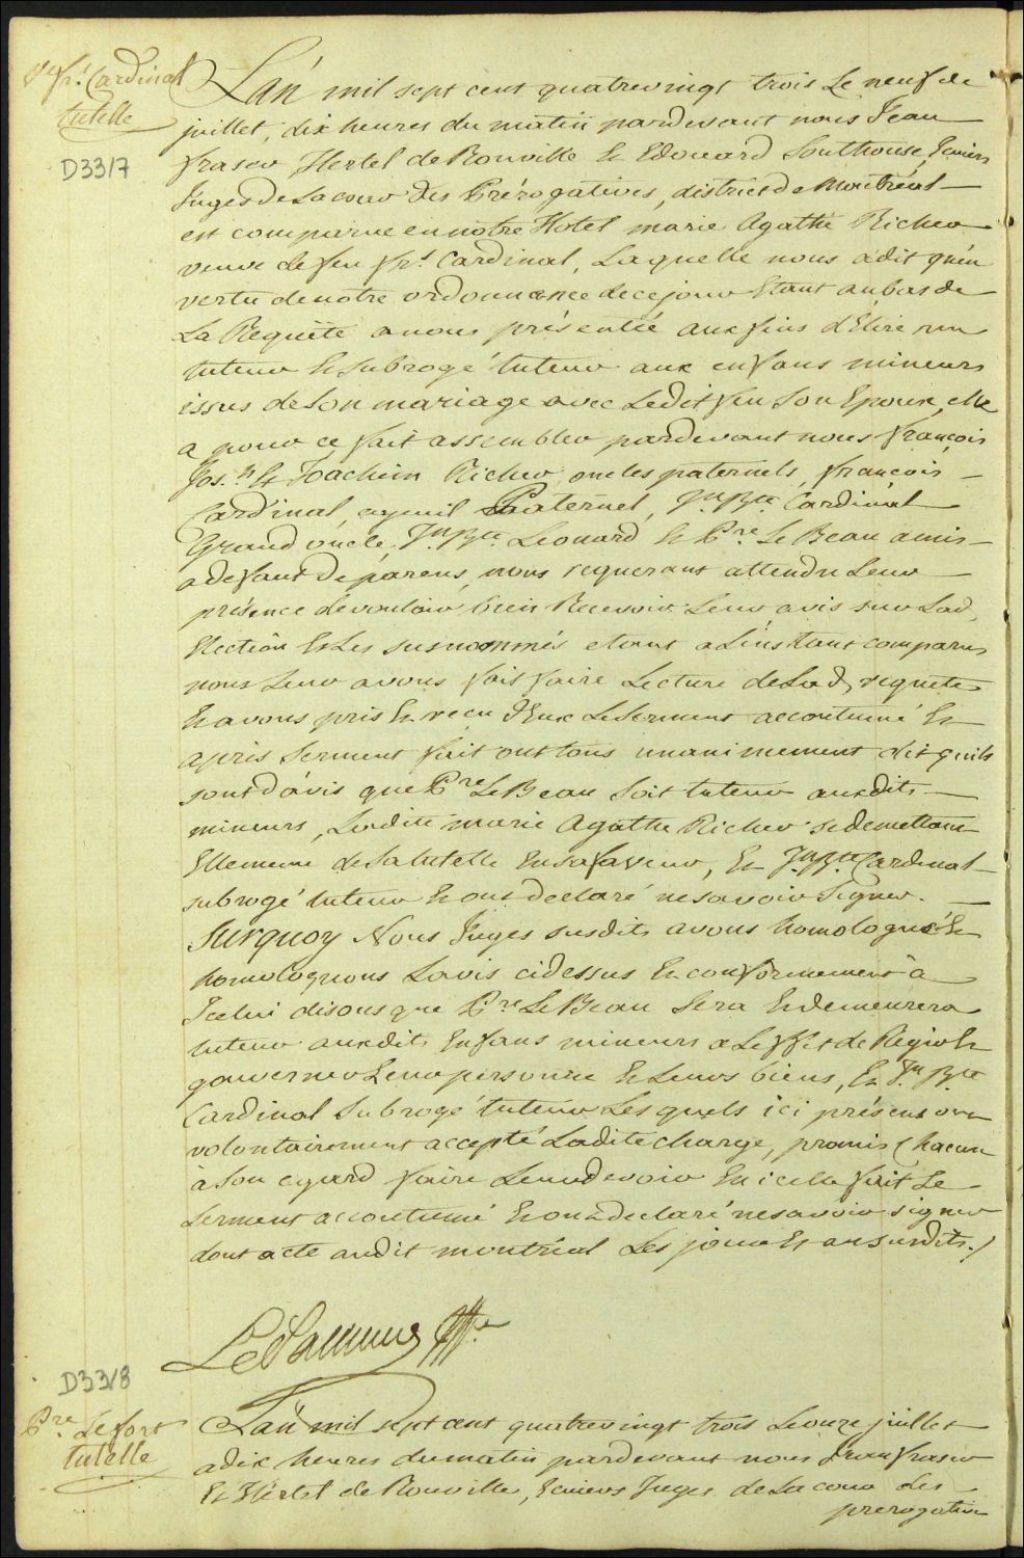 frs. Cardinal
tutelle
D3317
L'an mil sept cent quatrevingt trois Le neuf de
juillet, dix heures du matin pardevant nous Jean
fraser, Hertel de Rouville Et Edouard Southouse, Ecuiers
Juges De La cour des Prérogatives, district de Montréal —
est comparue en notre Hotel marie Agathe Richer
veuve de feu frs. Cardinal, Laquelle nous a dit qu'en
vertu de notre ordonnance de ce jour Etant au bas de
La Requête a nous présentée aux fins d'Elire un
tuteur Et subrogé tuteur aux enfans mineurs
issus de Son mariage avec Ledit feu Son Epoux, elle
a pour ce fait assembler pardevant nous françois
Jos.h Et Joachim Richer oncles paternels, françois —
Cardinal, ayeuil Paternel, Jn. Bte. Cardinal
Grand oncle, Jn. Bte. Leonard Et Pre. Le Beau amis —
a defaut De parens, nous requerant attendu Leur —
présence de vouloir bien Recevoir Leur avis sur Lad.
Election Et Les susnommés etant a L'instant comparus
nous Leur avons fait faire Lecture de Lad. requete
Et avons pris Et reçu d'Eux Le Serment accoutumé Et
après Serment fait ont tous unanimement dit qu'ils
sont D'avis que Pre Le Beau Soit tuteur auxdits —
mineurs, Ladite marie Agathe Richer se demettant
Ellememe de La tutelle En sa faveur, Et Jn. Bte. Cardinal —
subrogé tuteur Et ont Declaré ne savoir Signer. —
Surquoy Nous Juges susdits avons homologué Et
homologuons L'avis cidessus Et conformement à
Icelui disons que Pre Le Beau Sera Et demeurera
tuteur auxdits Enfans mineurs a L'effet de Régir Et
gouverner Leur personne Et Leurs biens, Et Jn. Bte
Cardinal Subrogé tuteur Lesquels ici présens ont
volontairement accepté Ladite charge, promis Chacun
à Son egard faire Leur devoir En icelle fait Le
Serment accoutumé Et ont declaré ne savoir signer
dont acte audit montréal Les jour Et an susdits./
D3318
Pre. Lefort
tutelle
L'an mil sept cent quatrevingt trois Le onze juillet
a dix heures du matin pardevant nous Jean fraser
Et Hertel de Rouville, Ecuiers Juges de La cour des
prerogatives